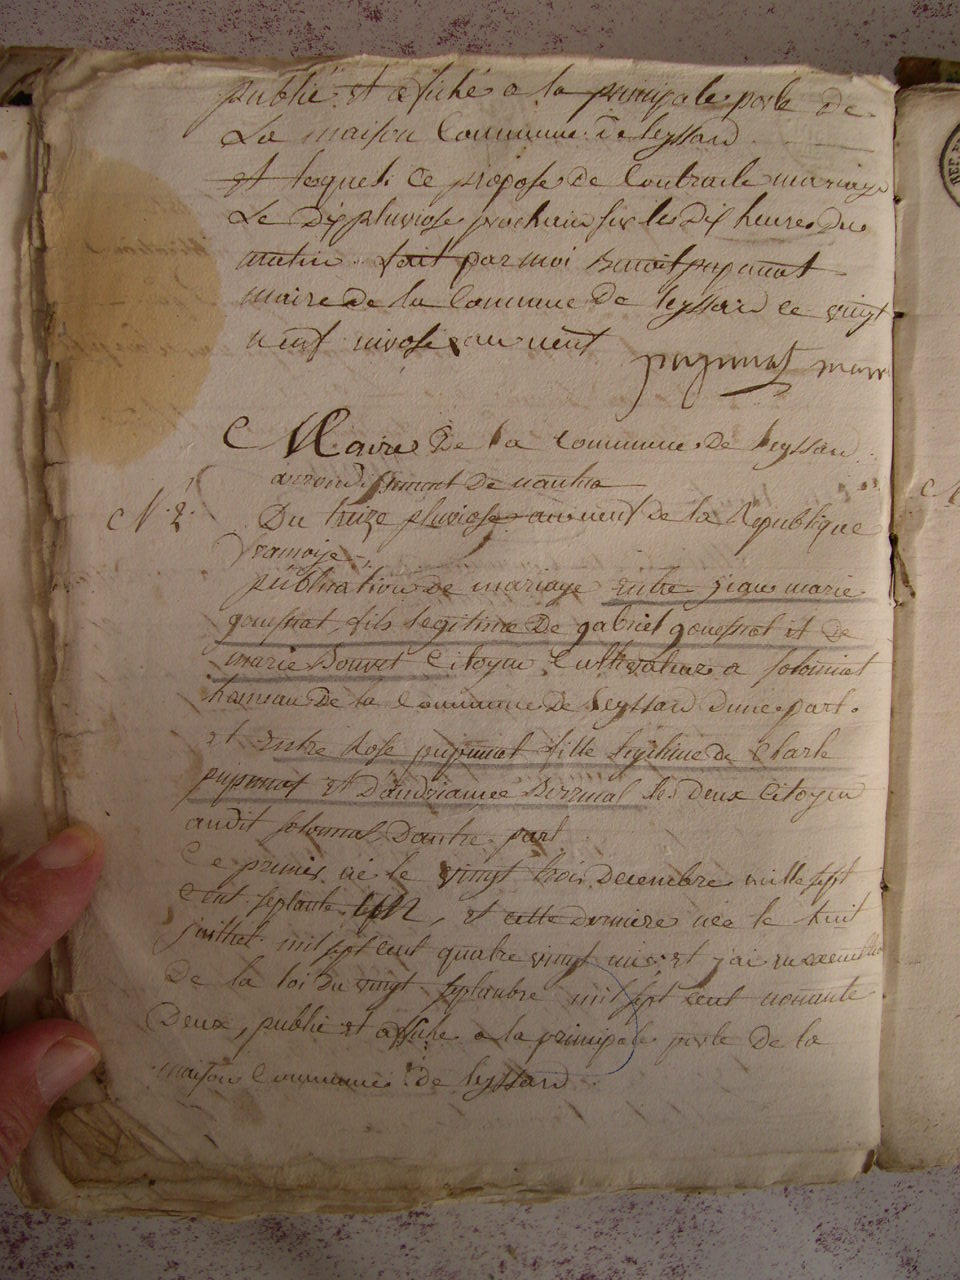 publié et afiché a la principale porte de
La maison Commune de leyssard
et lesquels ce propose de Contracte mariage
Le Dix pluviose prochain sur les Dix heures Du
matin. fait par moi Benoit pupunat
maire de la Commune De leyssard ce vingt
neuf nivose an neuf
pupunat maire
Maire De la Commune De leyssard
arrondissement De nantua
N. 2. Du treize pluviose an neuf de la Republique
francoise
publication de mariage entre jean marie
goueffrat, fils legitime De gabriel goueffrat et de
marie Bouvet Citoyen Cultivateur a solomiat
hameau De la Commune De leyssard dune part.
et Entre Rose pupunat fille legitime de Charle
pupunat et D'andrianne les Deux Citoyen
audit Dautre part
Ce premier né le vingt trois Decembre mille sept
Cent septante, et cette derniere née le huit
juillet mil sept cent quatre vingt et j'ai en execution
De la loi Du vingt septambre mil sept cent nonante
Deux, publié et affiché a la principale porte De la
maison Commune de leyssard